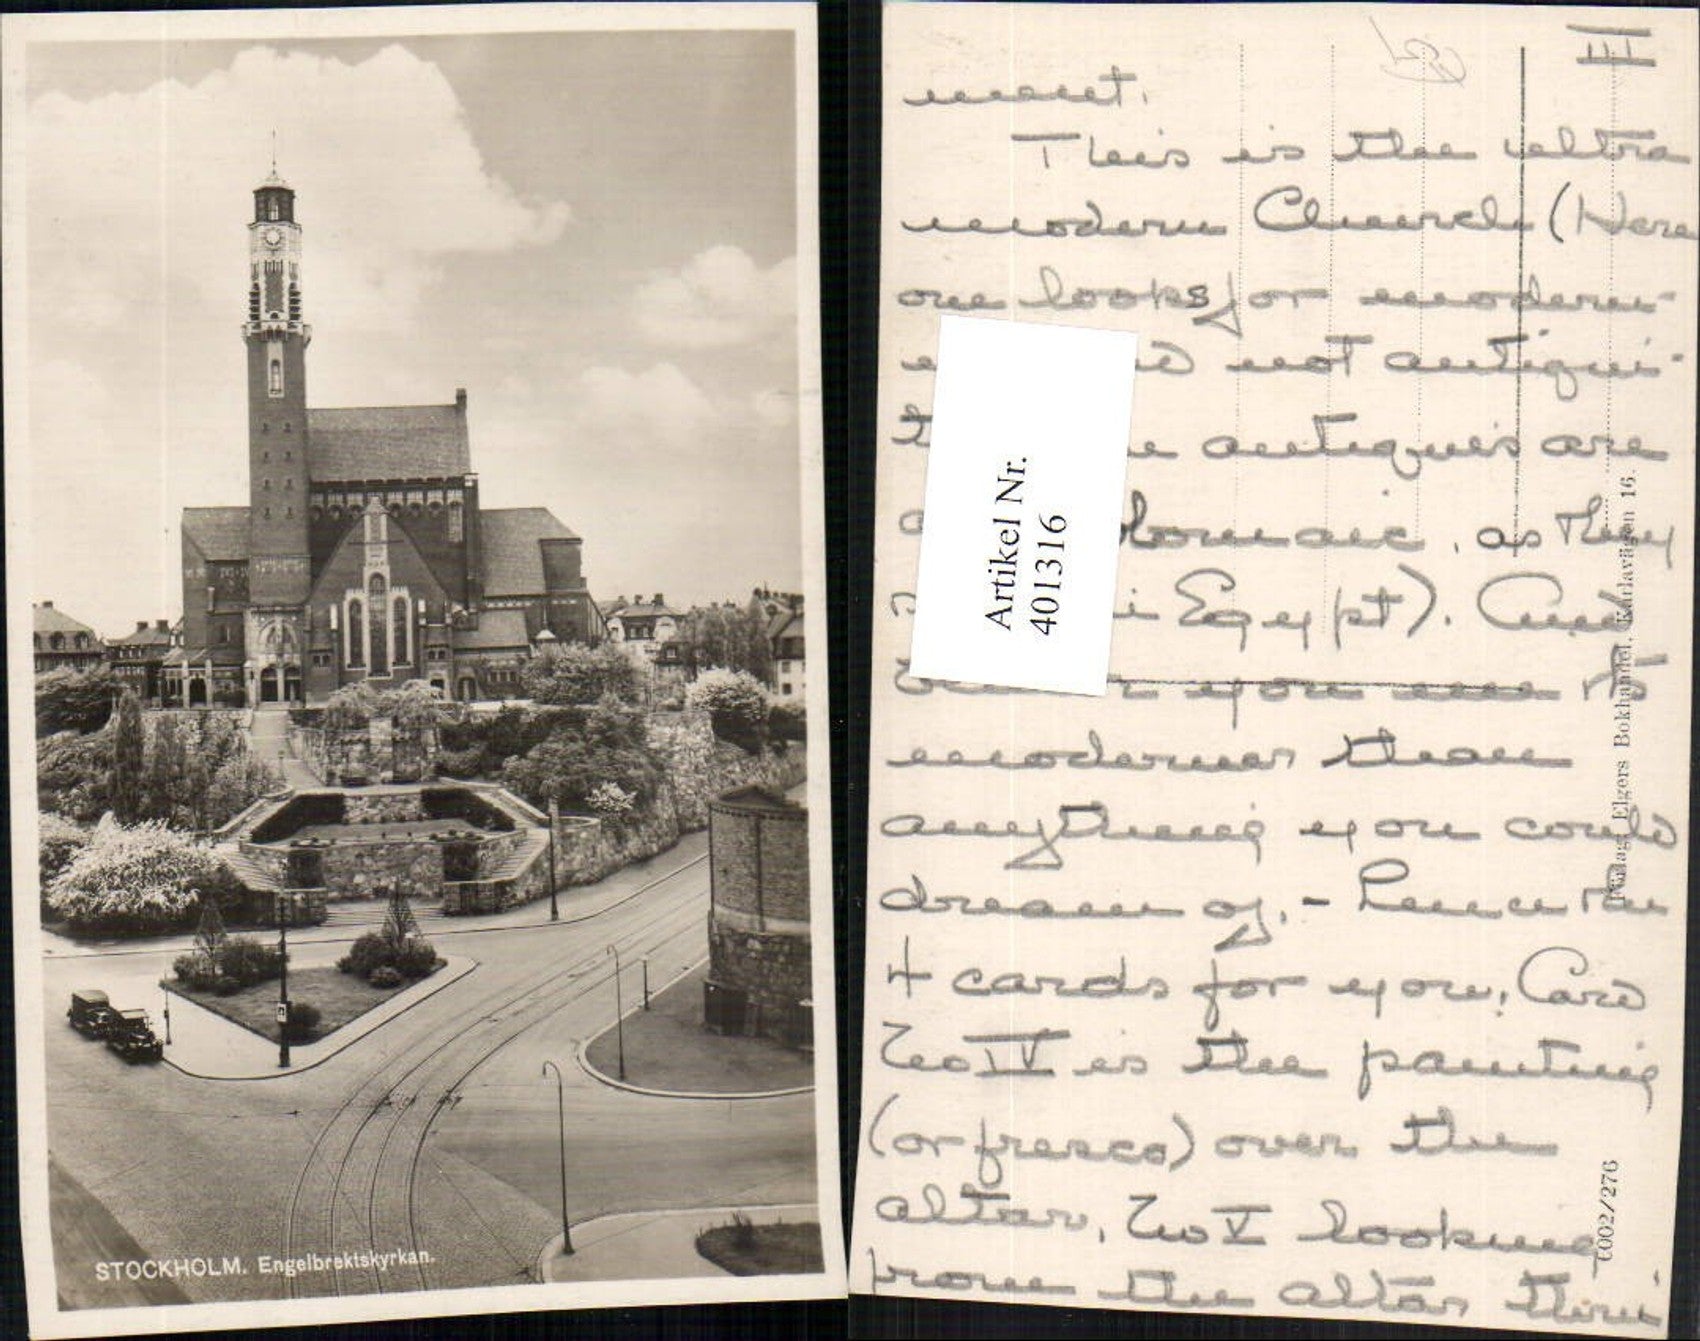 STOCKHOLM. Engelbrektskyrkan.
III
ment.
This is the ultra
modern Church (Here
one looks for modern-
not antiqui-
antiques are
as they
Egypt). And
you un
moderner than
anything you could
dream of, - hence the
4 cards for you, Card
No IV is the painting
(or fresco) over the
altar, No V looking
from the altar thru
Artikel Nr.
401316
Förlag: Elgers Bokhandel, Karlavägen 16.
6002/276